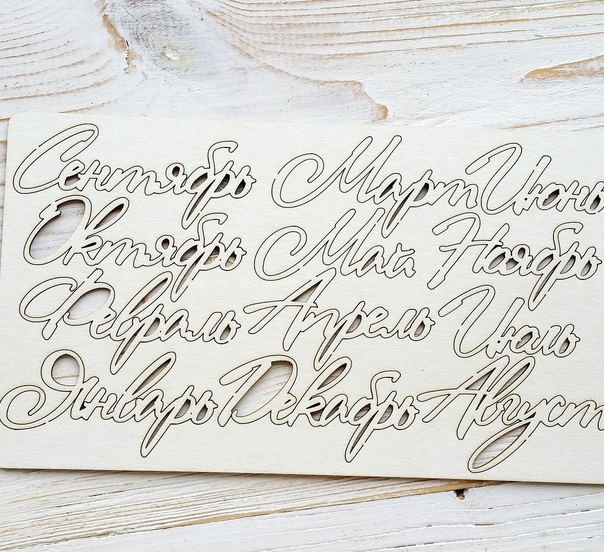 Сентябрь Март Июнь
Октябрь Май Ноябрь
Февраль Апрель Июль
Январь Декабрь Август